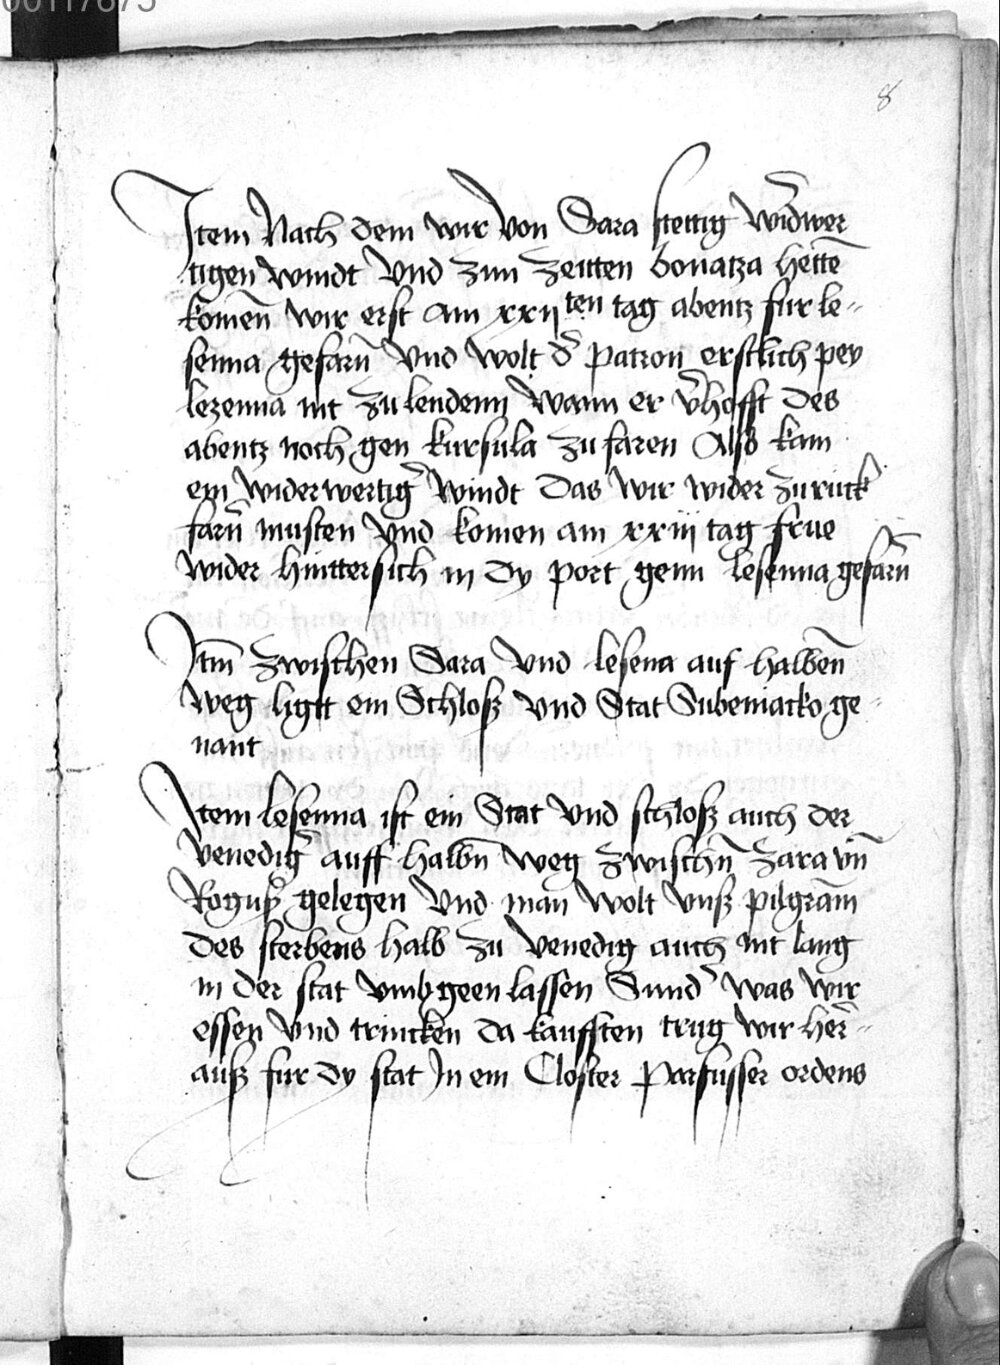 00117675
8
Item Nach dem wir von Sara stettig wid̉wer
tigen windt vnd zun zeitten bonatza hettē
komen̄ wir erst am xxij ten tag abentz fur le=
senna gefarn̄ vnd wolt d̉ patron erstlich pey
lezenna nit zu lendenn wann er v̉hofft des
abentz noch gen kursula zu faren Also kam
ein widerwertig̉ windt das wir wider zuruck
farn̄ musten vnd komen am xxiij tag frue
wider hinttersich in dy port genn lesenna gefarn̄
Itm̄ zwischen Sara vnd lesena auf halben̄
weg ligtt ein Schloß vnd Stat Subeniacko ge=
nant
Item lesenna ist ein Stat vnd schloß auch der
venedig̉ auff halbn̄ weg zwischn̄ Zara vn̄
Roguß gelegen vnd man wolt vnß pilgram̄
des sterbens halb zu venedig auch nit lang
in der stat vmb geen lassen Sund̉ was wir
essen vnd trincken da kaufften trug wir her=
auß fur dy stat In ein Closter Parfusser ordens